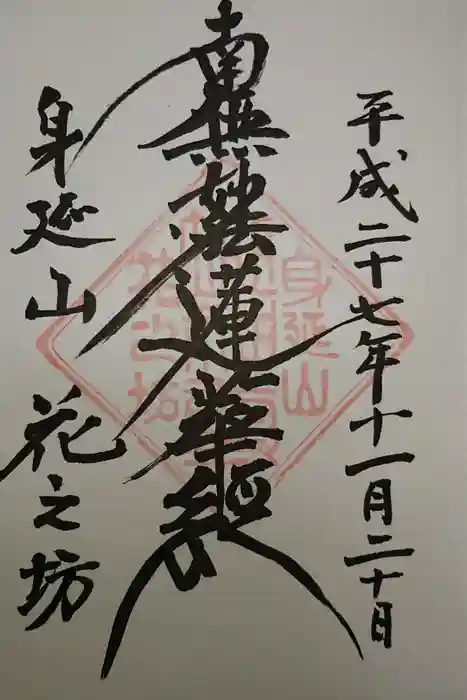 平成二十七年十一月二十日
南無妙法蓮華経
身延山 花之坊